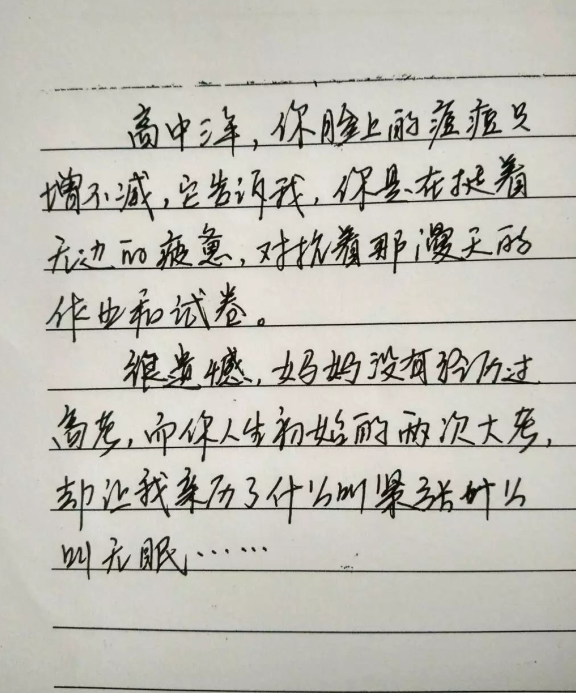 高中三年，你脸上的痘痘只
增不减，它告诉我，你是在挺着
无边的疲惫，对抗着那漫天的
作业和试卷。
很遗憾，妈妈没有经历过
高考，而你人生初始的两次大考，
却让我亲历了什么叫紧张什么
叫无眠……